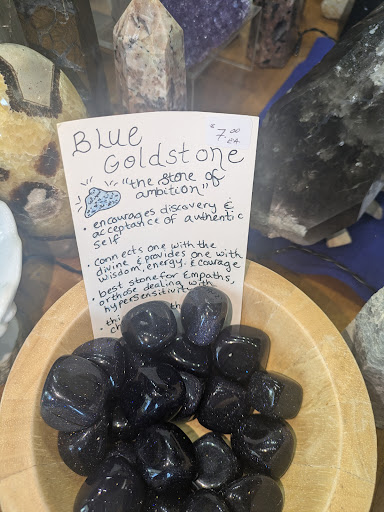 Blue
Goldstone
$7.00
ea.
"the stone of
ambition"
• encourages discovery &
acceptance of authentic
self
• connects one with the
divine & provides one with
wisdom, energy, & courage
• best stone for Empaths,
or those dealing with
hypersensitivity
• th